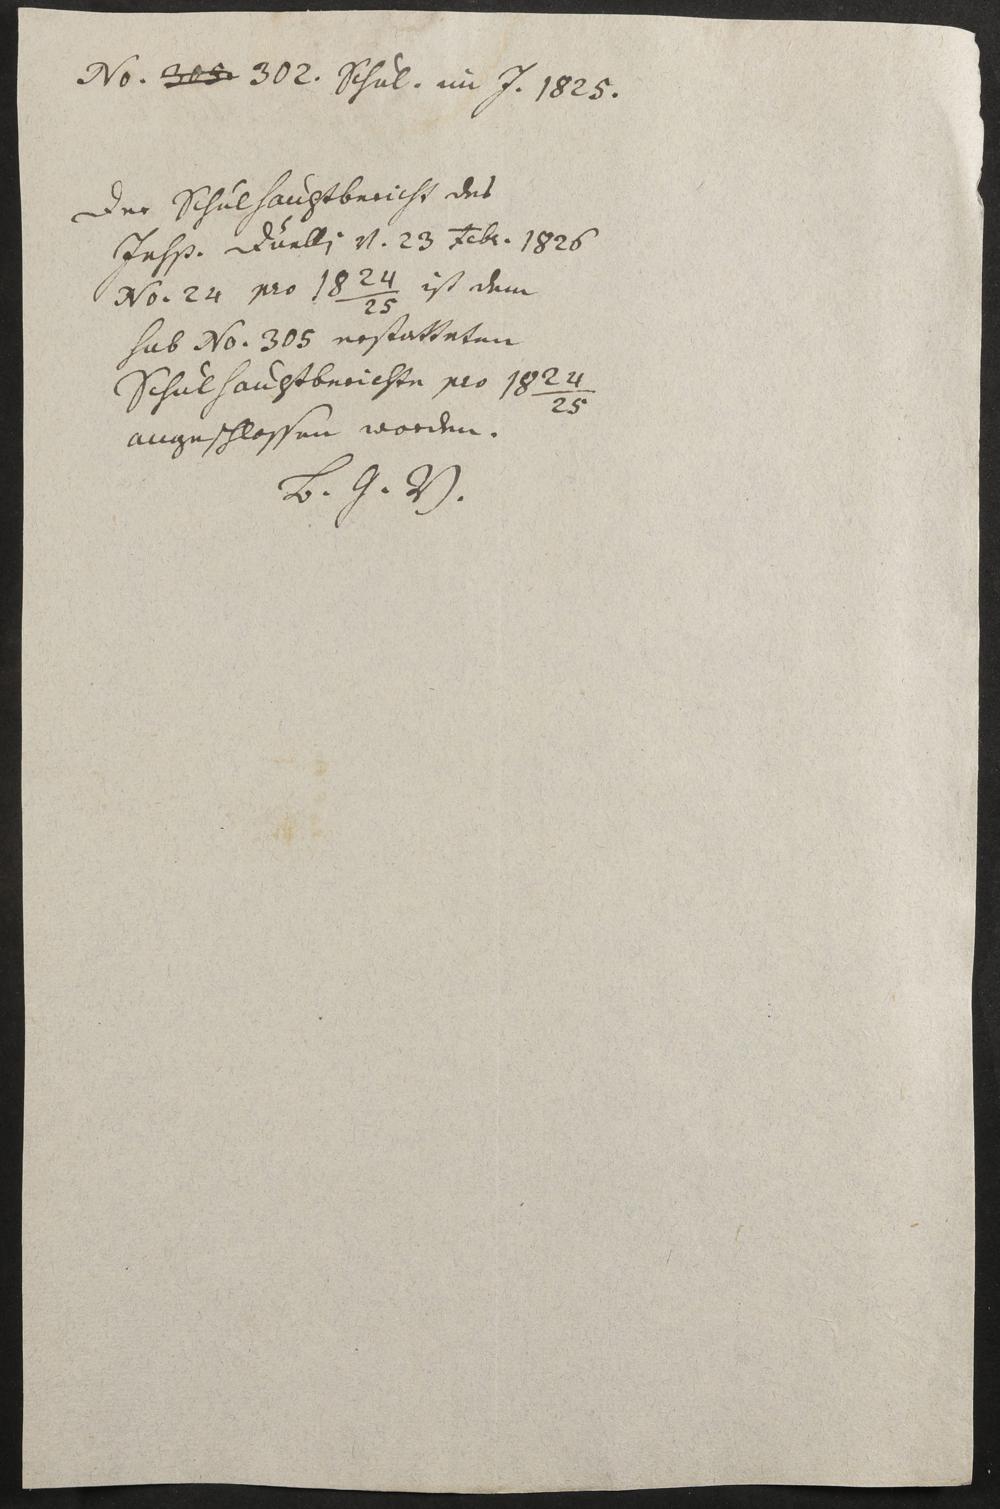 No. 305. 302. Schul. im J. 1825.
Der Schulhauptbericht des
Insp. Düelli v. 23 Febr. 1826
No. 24 pro 18 24/25 ist dem
sub No. 305 erstatteten
Schulhauptberichte pro 18 24/25
angeschlossen worden.
B. G. V.